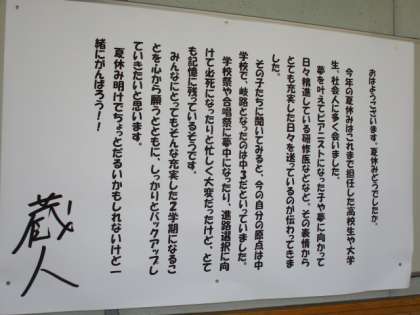 おはようございます。夏休みどうでしたか。
今年の夏休みはこれまで担任した高校生や大学
生、社会人に多く会いました。
夢を叶えてピアニストになった子や夢に向かって
日々精進している研修医などなど、その表情から
とても充実した日々を送っているのが伝わってきま
した。
その子たちに聞いてみると、今の自分の原点は中
学校で、岐路となったのは中3だといっていました。
学校祭や合唱祭に夢中になったり、進路選択に向
けて必死になったりと忙しく大変だったけど、とて
も記憶に残っているそうです。
みんなにとってもそんな充実した2学期になるこ
とを心から願うとともに、しっかりとバックアップし
ていきたいと思います。
夏休み明けでちょっとだるいかもしれないけど一
緒にがんばろう！！
蔵人